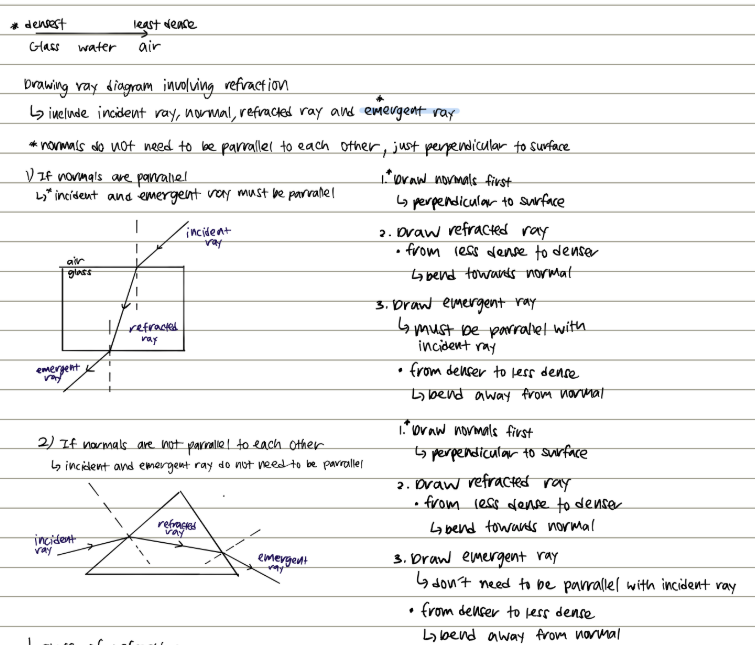 * densest least dense
Glass water air
Drawing ray diagram involving refraction
↳ include incident ray, normal, refracted ray and emergent ray
*
* normals do not need to be parrallel to each other, just perpendicular to surface
1) If normals are parrallel
↳* incident and emergent ray must be parrallel
incident
ray
air
glass
refracted
ray
emergent
ray
1.* Draw normals first
↳ perpendicular to surface
2. Draw refracted ray
• from less dense to denser
↳ bend towards normal
3. Draw emergent ray
↳ must be parrallel with
incident ray
• from denser to less dense
↳ bend away from normal
2) If normals are not parrallel to each other
↳ incident and emergent ray do not need to be parrallel
incident
ray
refracted
ray
emergent
ray
1.* Draw normals first
↳ perpendicular to surface
2. Draw refracted ray
• from less dense to denser
↳ bend towards normal
3. Draw emergent ray
↳ don't need to be parrallel with incident ray
• from denser to less dense
↳ bend away from normal